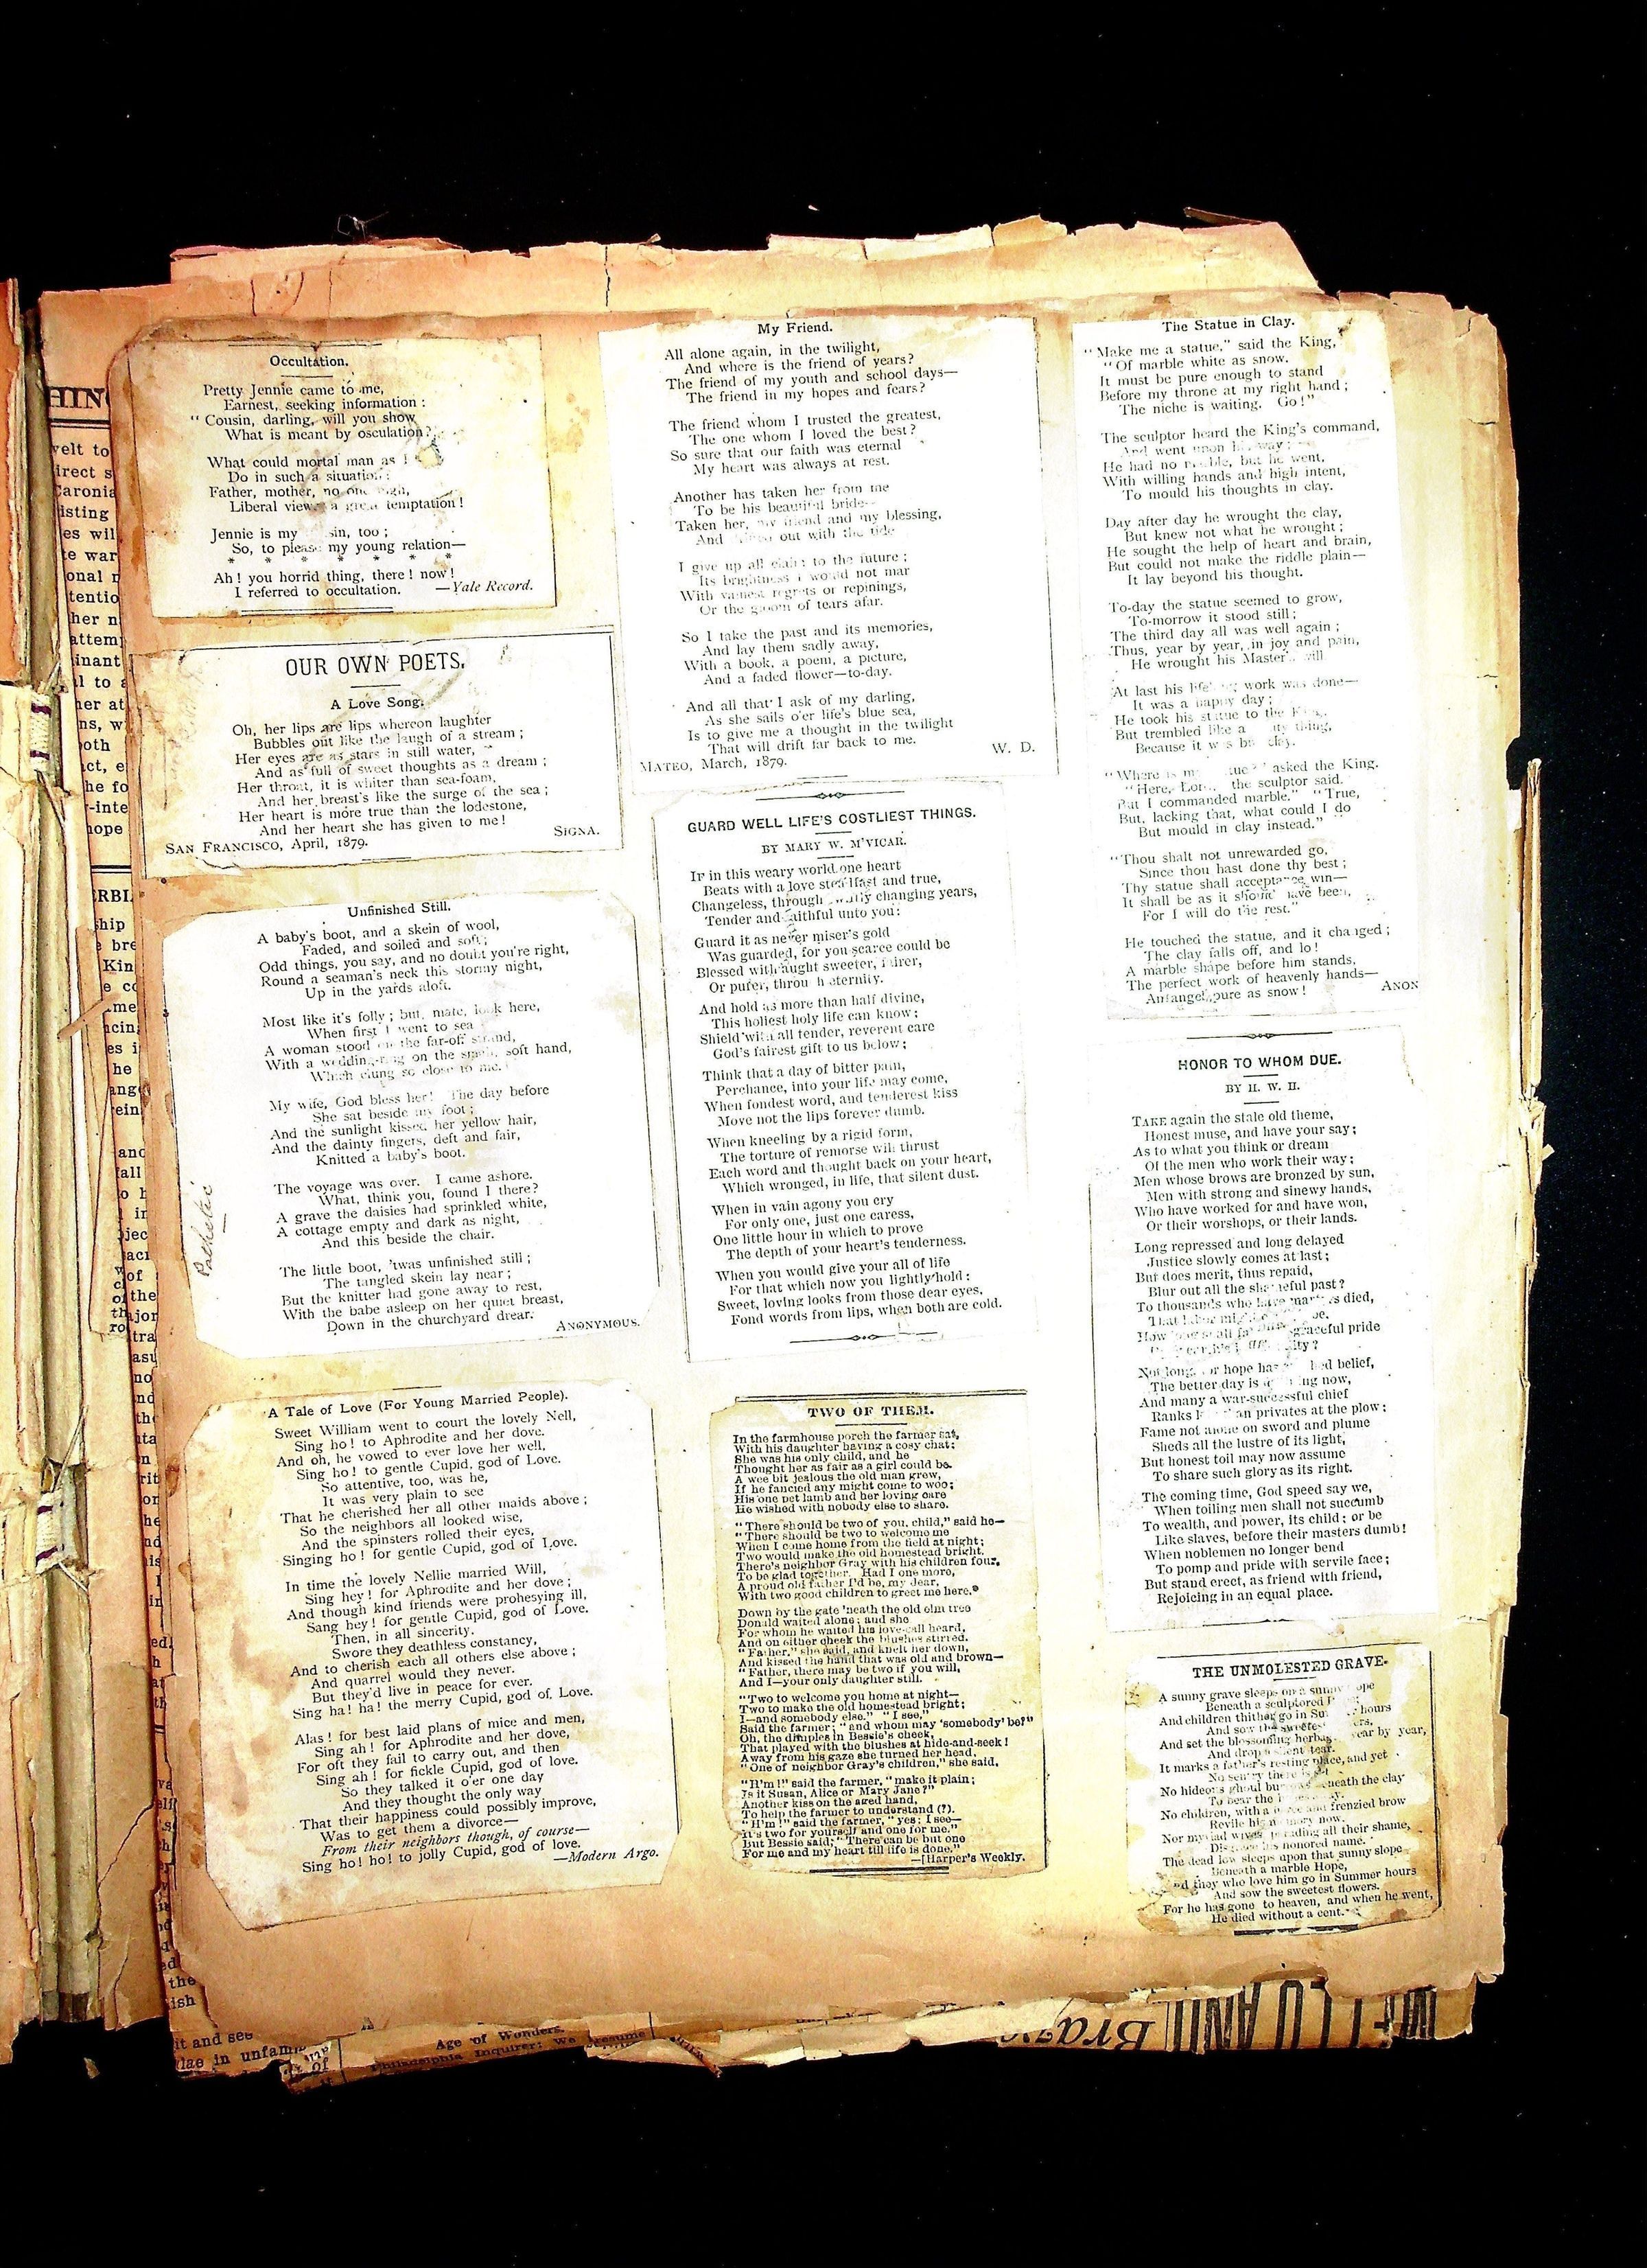 Occultation.
Pretty Jennie came to me,
Earnest, seeking information:
"Cousin, darling, will you show
What is meant by osculation?
What could mortal man as I
Do in such a situation?
Father, mother, no one nigh,
Liberal view, a great temptation!
Jennie is my sin, too;
So, to please my young relation—
* * * * * * *
Ah! you horrid thing, there! now!
I referred to occultation. —Yale Record.
OUR OWN POETS.
A Love Song.
Oh, her lips are lips whereon laughter
Bubbles out like the laugh of a stream;
Her eyes are as stars in still water,
And as full of sweet thoughts as a dream;
Her throat, it is whiter than sea-foam,
And her breast's like the surge of the sea;
Her heart is more true than the lodestone,
And her heart she has given to me!
SIGNA.
SAN FRANCISCO, April, 1879.
Unfinished Still.
A baby's boot, and a skein of wool,
Faded, and soiled and soft;
Odd things, you say, and no doubt you're right,
Round a seaman's neck this stormy night,
Up in the yards aloft.
Most like it's folly; but, mate, look here,
When first I went to sea
A woman stood on the far-off strand,
With a wedding-ring on the small, soft hand,
Which clung so close to me.
My wife, God bless her! The day before
She sat beside my foot;
And the sunlight kissed her yellow hair,
And the dainty fingers, deft and fair,
Knitted a baby's boot.
The voyage was over. I came ashore.
What, think you, found I there?
A grave the daisies had sprinkled white,
A cottage empty and dark as night,
And this beside the chair.
The little boot, 'twas unfinished still;
The tangled skein lay near;
But the knitter had gone away to rest,
With the babe asleep on her quiet breast,
Down in the churchyard drear.
ANONYMOUS.
Pathetic
A Tale of Love (For Young Married People).
Sweet William went to court the lovely Nell,
Sing ho! to Aphrodite and her dove.
And oh, he vowed to ever love her well,
Sing ho! to gentle Cupid, god of Love.
So attentive, too, was he,
It was very plain to see
That he cherished her all other maids above;
So the neighbors all looked wise,
And the spinsters rolled their eyes,
Singing ho! for gentle Cupid, god of Love.
In time the lovely Nellie married Will,
Sing hey! for Aphrodite and her dove;
And though kind friends were prohesying ill,
Sang hey! for gentle Cupid, god of Love.
Then, in all sincerity,
Swore they deathless constancy,
And to cherish each all others else above;
And quarrel would they never.
But they'd live in peace for ever.
Sing ha! ha! the merry Cupid, god of Love.
Alas! for best laid plans of mice and men,
Sing ah! for Aphrodite and her dove,
For oft they fail to carry out, and then
Sing ah! for fickle Cupid, god of love.
So they talked it o'er one day
And they thought the only way
That their happiness could possibly improve,
Was to get them a divorce—
From their neighbors though, of course—
Sing ho! ho! to jolly Cupid, god of love.
—Modern Argo.
My Friend.
All alone again, in the twilight,
And where is the friend of years?
The friend of my youth and school days—
The friend in my hopes and fears?
The friend whom I trusted the greatest,
The one whom I loved the best?
So sure that our faith was eternal
My heart was always at rest.
Another has taken her from me
To be his beautiful bride—
Taken her, my friend and my blessing,
And out with the tide
I give up all claim to the future;
Its brightness I would not mar
With vainest regrets or repinings,
Or the gloom of tears afar.
So I take the past and its memories,
And lay them sadly away,
With a book, a poem, a picture,
And a faded flower—to-day.
And all that I ask of my darling,
As she sails o'er life's blue sea,
Is to give me a thought in the twilight
That will drift far back to me.
W. D.
MATEO, March, 1879.
GUARD WELL LIFE'S COSTLIEST THINGS.
BY MARY W. M'VICAR.
IF in this weary world one heart
Beats with a love steadfast and true,
Changeless, through changing years,
Tender and faithful unto you:
Guard it as never miser's gold
Was guarded, for you scarce could be
Blessed with aught sweeter, fairer,
Or purer, through eternity.
And hold as more than half divine,
This holiest holy life can know;
Shield with all tender, reverent care
God's fairest gift to us below;
Think that a day of bitter pain,
Perchance, into your life may come,
When fondest word, and tenderest kiss
Move not the lips forever dumb.
When kneeling by a rigid form,
The torture of remorse will thrust
Each word and thought back on your heart,
Which wronged, in life, that silent dust.
When in vain agony you cry
For only one, just one caress,
One little hour in which to prove
The depth of your heart's tenderness.
When you would give your all of life
For that which now you lightly hold:
Sweet, loving looks from those dear eyes,
Fond words from lips, when both are cold.
TWO OF THEM.
In the farmhouse porch the farmer sat,
With his daughter having a cosy chat;
She was his only child, and he
Thought her as fair as a girl could be.
A wee bit jealous the old man grew,
If he fancied any might come to woo;
His one pet lamb and her loving care
He wished with nobody else to share.
"There should be two of you, child," said he—
"There should be two to welcome me
When I come home from the field at night;
Two would make the old homestead bright.
There's neighbor Gray with his children four,
To be glad together. Had I one more,
A proud old father I'd be, my dear,
With two good children to greet me here."
Down by the gate 'neath the old elm tree
Donald waited alone; and she
For whom he waited his love-call heard,
And on either cheek the blushes stirred.
"Father," she said, and knelt her down,
And kissed the hand that was old and brown—
"Father, there may be two if you will,
And I—your only daughter still.
"Two to welcome you home at night—
Two to make the old homestead bright;
I—and somebody else." "I see,"
Said the farmer; "and whom may 'somebody' be?"
Oh, the dimples in Bessie's cheek,
That played with the blushes at hide-and-seek!
Away from his gaze she turned her head,
"One of neighbor Gray's children," she said.
"H'm!" said the farmer, "make it plain;
Is it Susan, Alice or Mary Jane?"
Another kiss on the aged hand,
To help the farmer to understand (?).
"H'm!" said the farmer, "yes; I see—
It's two for yourself and one for me."
But Bessie said: "There can be but one
For me and my heart till life is done."
—[Harper's Weekly.
The Statue in Clay.
"Make me a statue," said the King,
"Of marble white as snow.
It must be pure enough to stand
Before my throne at my right hand;
The niche is waiting. Go!"
The sculptor heard the King's command,
And went upon his way;
He had no marble, but he went,
With willing hands and high intent,
To mould his thoughts in clay.
Day after day he wrought the clay,
But knew not what he wrought;
He sought the help of heart and brain,
But could not make the riddle plain—
It lay beyond his thought.
To-day the statue seemed to grow,
To-morrow it stood still;
The third day all was well again;
Thus, year by year, in joy and pain,
He wrought his Master's will.
At last his life work was done—
It was a happy day;
He took his statue to the King,
But trembled like a thing,
Because it was but clay.
"Where is my statue?" asked the King.
"Here, Lord," the sculptor said.
But I commanded marble." "True,
But, lacking that, what could I do
But mould in clay instead."
"Thou shalt not unrewarded go,
Since thou hast done thy best;
Thy statue shall acceptance win—
It shall be as it should have been,
For I will do the rest."
He touched the statue, and it changed;
The clay falls off, and lo!
A marble shape before him stands,
The perfect work of heavenly hands—
An angel, pure as snow!
ANON
HONOR TO WHOM DUE.
BY H. W. H.
TAKE again the stale old theme,
Honest muse, and have your say;
As to what you think or dream
Of the men who work their way;
Men whose brows are bronzed by sun,
Men with strong and sinewy hands,
Who have worked for and have won,
Or their worshops, or their lands.
Long repressed and long delayed
Justice slowly comes at last;
But does merit, thus repaid,
Blur out all the shameful past?
To thousands who have martyrs died,
That labor might be,
How long shall graceful pride
Not long, for hope has belief,
The better day is now,
And many a war-successful chief
Ranks privates at the plow;
Fame not alone on sword and plume
Sheds all the lustre of its light,
But honest toil may now assume
To share such glory as its right.
The coming time, God speed say we,
When toiling men shall not succumb
To wealth, and power, its child; or be
Like slaves, before their masters dumb!
When noblemen no longer bend
To pomp and pride with servile face;
But stand erect, as friend with friend,
Rejoicing in an equal place.
THE UNMOLESTED GRAVE.
A sunny grave sleeps on a sunny slope
Beneath a sculptored
And children thither go in hours
And sow the sweetest
And set the blossoming herbage year by year,
And drop a silent tear.
It marks a father's resting place, and yet
No sentry there is set
No hideous ghoul burrows beneath the clay
To bear the
No children, with a and frenzied brow
Revile his memory now.
Nor myriad wives, parading all their shame,
Disgrace his honored name.
The dead low sleeps upon that sunny slope
Beneath a marble Hope,
And they who love him go in Summer hours
And sow the sweetest flowers.
For he has gone to heaven, and when he went,
He died without a cent.
it and see
Age of Wonders.
Philadelphia Inquirer: We presume